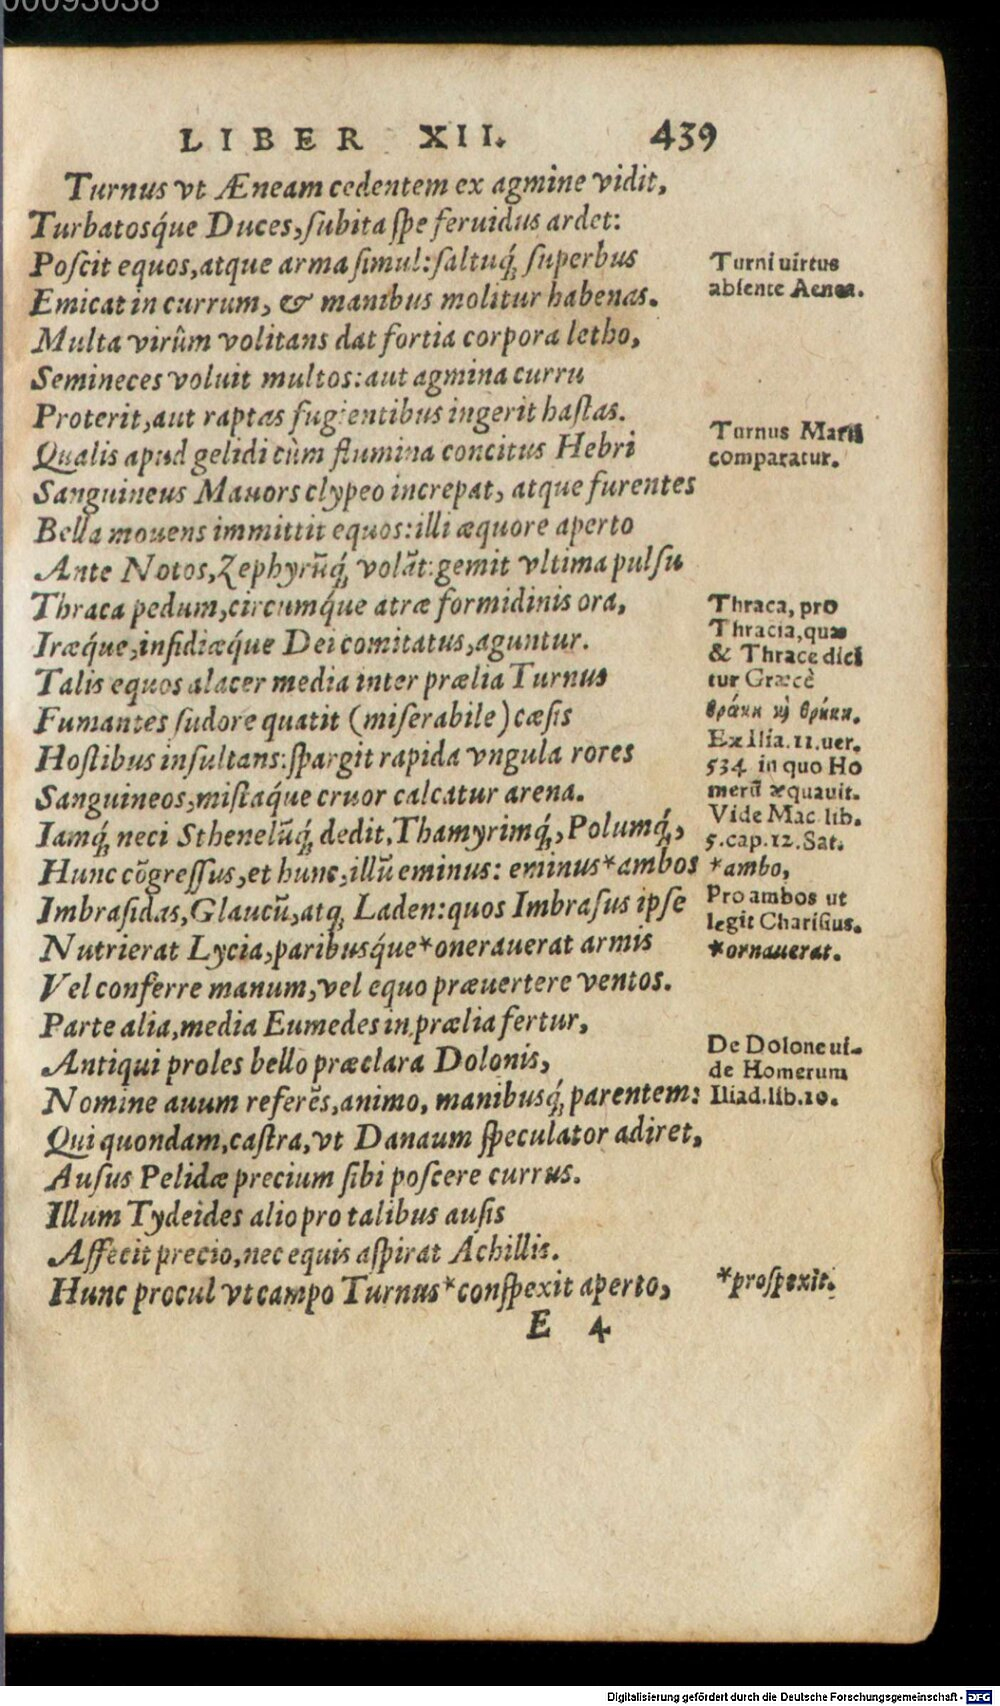 00093038
LIBER XII. 439
Turnus vt Æneam cedentem ex agmine vidit,
Turbatosq́ue Duces, ſubita ſpe feruidus ardet:
Poſcit equos, atque arma ſimul: ſaltuq́; ſuperbus
Emicat in currum, & manibus molitur habenas.
Multa virûm volitans dat fortia corpora letho,
Semineces voluit multos: aut agmina curru
Proterit, aut raptas fugientibus ingerit haſtas.
Qualis apud gelidi cùm flumina concitus Hebri
Sanguineus Mauors clypeo increpat, atque furentes
Bella mouens immittit equos: illi æquore aperto
Ante Notos, Zephyrũq́; volãt: gemit vltima pulſu
Thraca pedum, circumq́ue atræ formidinis ora,
Iræq́ue, inſidiæq́ue Dei comitatus, aguntur.
Talis equos alacer media inter prælia Turnus
Fumantes ſudore quatit (miſerabile) cæſis
Hoſtibus inſultans: ſpargit rapida vngula rores
Sanguineos, miſtaq́ue cruor calcatur arena.
Iamq́; neci Sthenelũq́; dedit, Thamyrimq́;, Polumq́;,
Hunc cõgreſſus, et hunc, illũ eminus: eminus *ambos
Imbraſidas, Glaucũ, atq; Laden: quos Imbraſus ipſe
Nutrierat Lycia, paribusq́ue *onerauerat armis
Vel conferre manum, vel equo præuertere ventos.
Parte alia, media Eumedes in prælia fertur,
Antiqui proles bello præclara Dolonis,
Nomine auum referẽs, animo, manibusq́; parentem:
Qui quondam, caſtra, vt Danaum ſpeculator adiret,
Auſus Pelidæ precium ſibi poſcere currus.
Illum Tydeides alio pro talibus auſis
Affecit precio, nec equis aſpirat Achillis.
Hunc procul vt campo Turnus *conſpexit aperto,
E 4
Turni uirtus
abſente Aenea.
Turnus Marti
comparatur.
Thraca, pro
Thracia, quæ
& Thrace dici
tur Græcè
θράκη κỳ θρήκη.
Ex Ilia. 11. uer.
534 in quo Ho
merũ æquauit.
Vide Mac. lib.
5. cap. 12. Sat.
*ambo,
Pro ambos ut
legit Chariſius.
*ornauerat.
De Dolone ui-
de Homerum
Iliad. lib. 10.
*proſpexit.
Digitalisierung gefördert durch die Deutsche Forschungsgemeinschaft - DFG